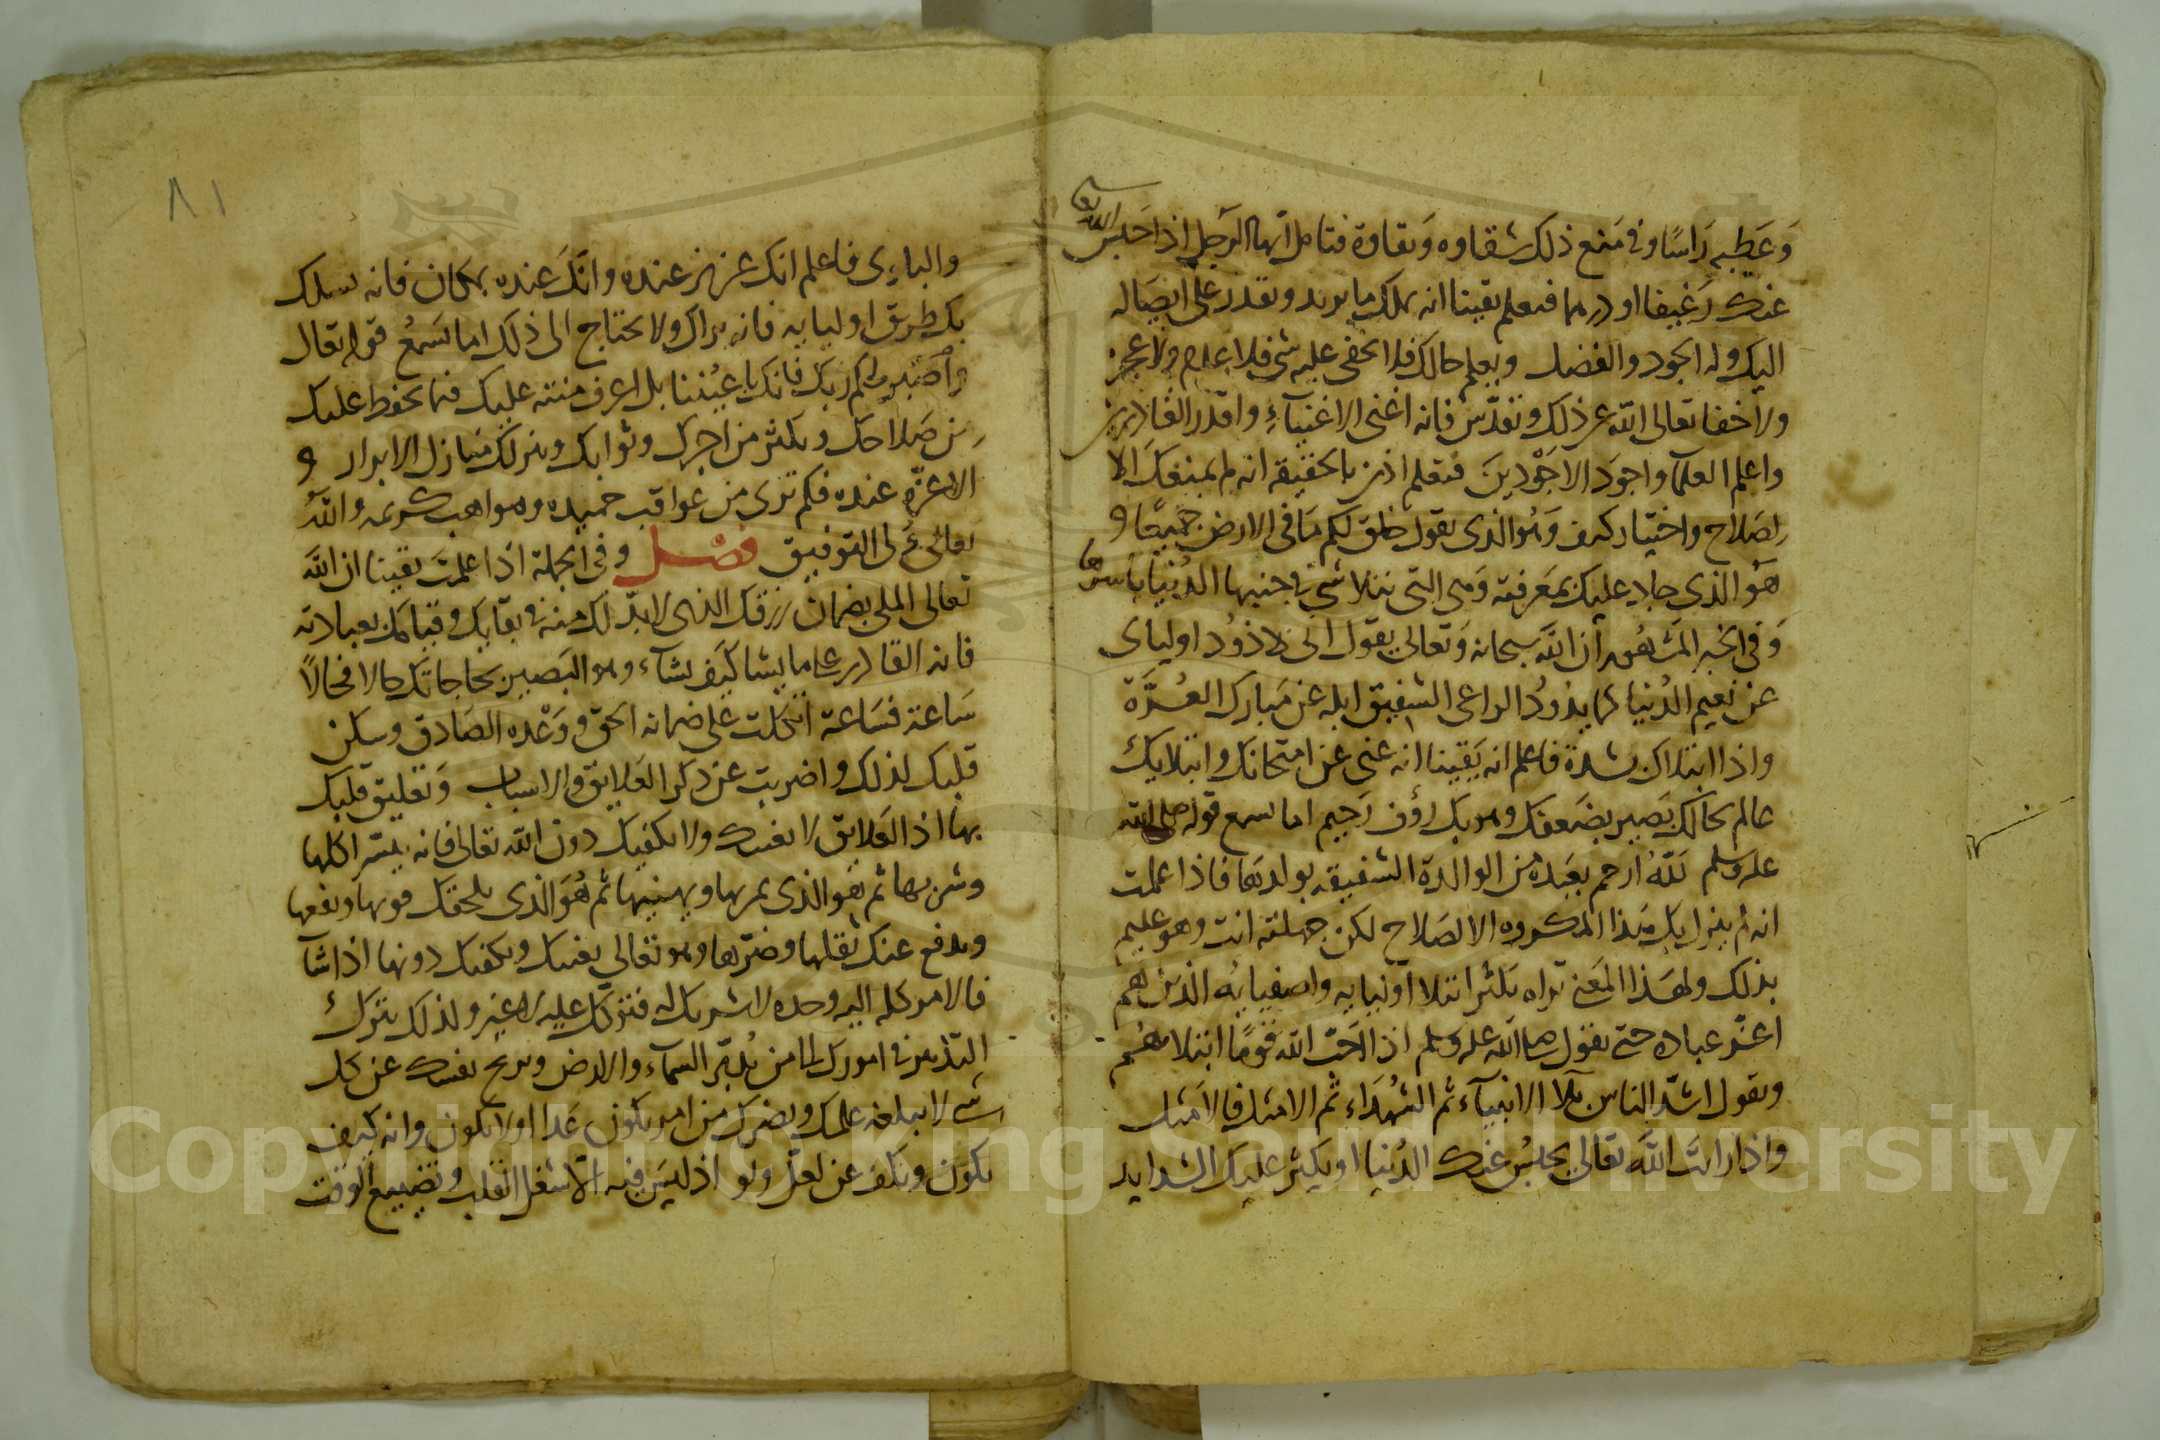 وعطبه راسا وفي منع ذلك شقاوه ونقاوة فتامل ايها الرجل اذا حبس الله تعالى
عنك رغيفا او درهما فتعلم يقينا انه يملك ما يريد ويقدر على ايصاله
اليك وله الجود والفضل ويعلم حالك فلا يخفى عليه شي فلا اعدام ولا عجز
ولا خفا تعالى الله عن ذلك وتقدس فانه اغنى الاغنيآء واقدر القادرين
واعلم العلما واجود الاجودين فتعلم اذن بالحقيقه انه لم يمنعك الا
لصلاح واختيار كيف وهو الذي يقول خلق لكم ما في الارض جميعا و
هو الذي جاد عليك بمعرفته وهي التي تتلاشى في جنبها الدنيا باسرها
وفي الخبر المشهور ان الله سبحانه وتعالى يقول اني لاذود اولياى
عن نعيم الدنيا كما يذود الراعى الشفيق ابله عن مبارك العرة
واذا ابتلاك بشدة فاعلم انه يقينا انه غنى عن امتحانك وابتلايك
عالم بحالك بصير بضعفك وهو بك رؤف رحيم اما تسمع قوله صلى الله
عليه وسلم لله ارحم بعبده من الوالدة الشفيقه بولدها فاذا علمت
انه لم ينزل بك هذا المكروه الا لصلاح لكن جهلته انت وهو عليم
بذلك ولهذا المعنى تراه يكثر ابتلا اوليايه واصفيايه الذين هم
اعز عباده حتى يقول صلى الله عليه وسلم اذا احب الله قوما ابتلاهم
ويقول اشد الناس بلا الانبيآء ثم الشهداء ثم الامثل فالامثل
واذا رايت الله تعالى يحبس عنك الدنيا او يكثر عليك الشدايد
٨١
والبلوى فاعلم انك عزيز عنده وانك عنده بمكان فانه يسلك
بك طريق اوليايه فانه يراك ولا يحتاج الى ذلك اما تسمع قوله تعالى
واصبر لحكم ربك فانك باعيننا بل اعرف منته عليك فيما يحفظ عليك
من صلاحك ويكثر من اجرك وثوابك وينزلك منازل الابرار و
الاعزه عنده فكم ترى من عواقب حميده ومواهب كريمه والله
تعالى ولى التوفيق فصل وفي الجملة اذا علمت يقينا ان الله
تعالى الملي بضمان رزقك الذى لا بد لك منه في بقايك وقيامك بعبادته
فانه القادر على ما يشا كيف يشآء وهو البصير بحاجاتك حالا فحالا
ساعة فساعة اتكلت على ضمانه الحق ووعده الصادق وسكن
قلبك لذلك واضربت عن ذكر العلايق والاسباب وتعليق قلبك
بها اذ العلايق لا تغنيك ولا تكفيك دون الله تعالى فانه ييسر اكلها
وشربها ثم هو الذى يمريها ويهنيها ثم هو الذى يلحقك قوتها ونفعها
ويدفع عنك ثقلها وضرها وهو تعالى يغنيك ويكفيك دونها اذا شآ
فالامر كله اليه وحده لا شريك له فتوكل عليه لا غير ولذلك تترك
التدبير في امورك الى من يدبر السمآء والارض وتريح نفسك عن كل
شي لا يبلغه علمك ويضرك من امر يكون غدا او لا يكون وانه كيف
يكون وتكف عن لعل ولو اذ ليس فيه الا شغل القلب وتضييع الوقت
Copyright © King Saud University